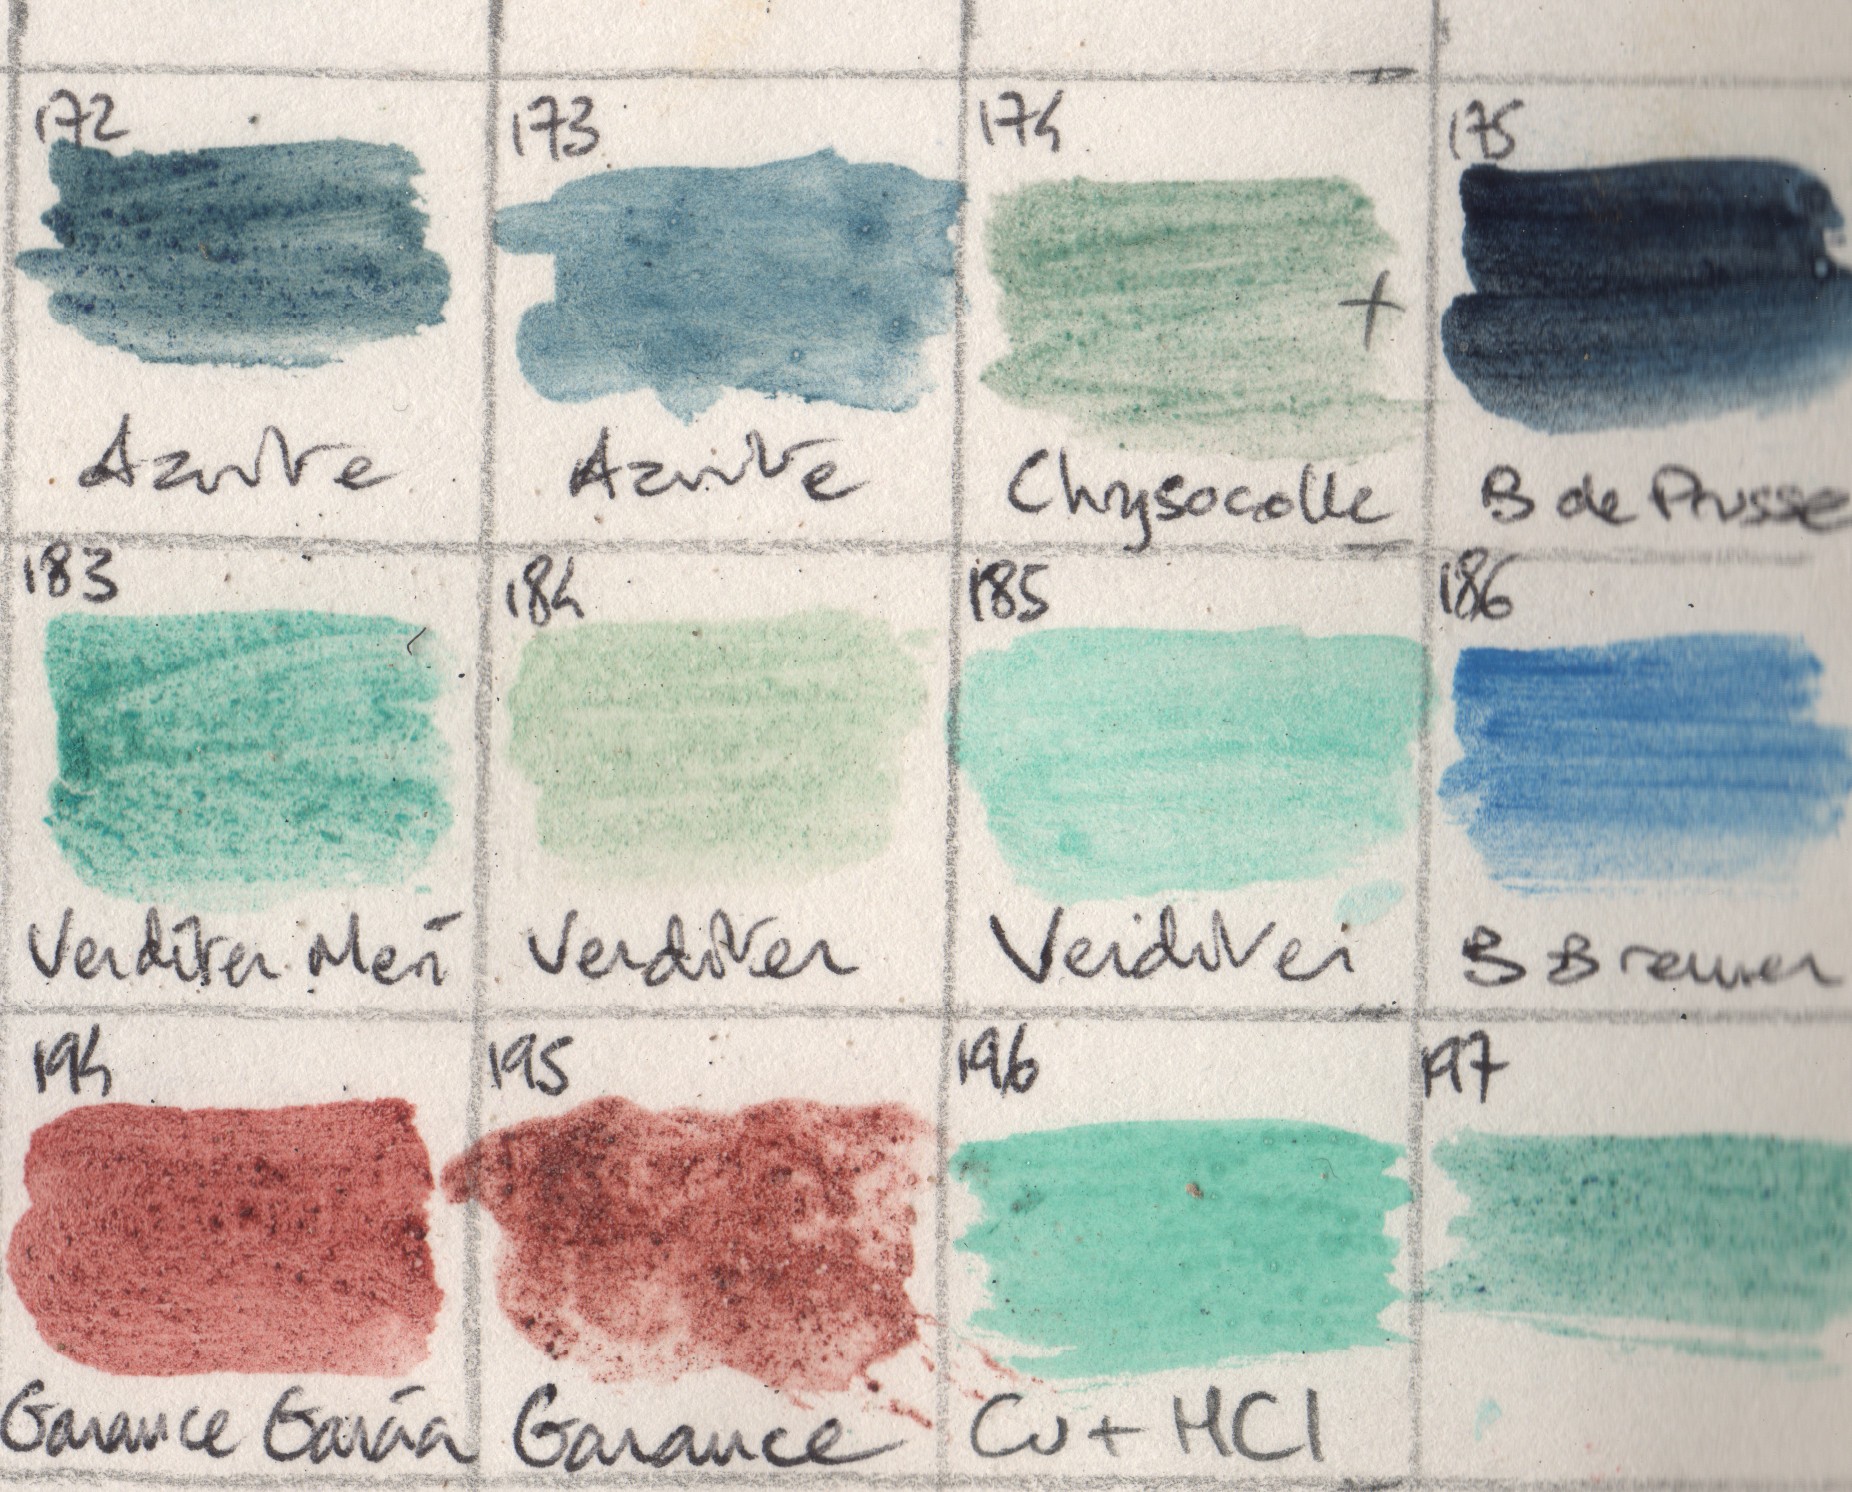 172 173 174 175
Azurite Azurite Chrysocolle B de Prusse
183 184 185 186
Verditer Verditer Verditer B Bremer
194 195 196 197
Garance Garance Cu + HCl